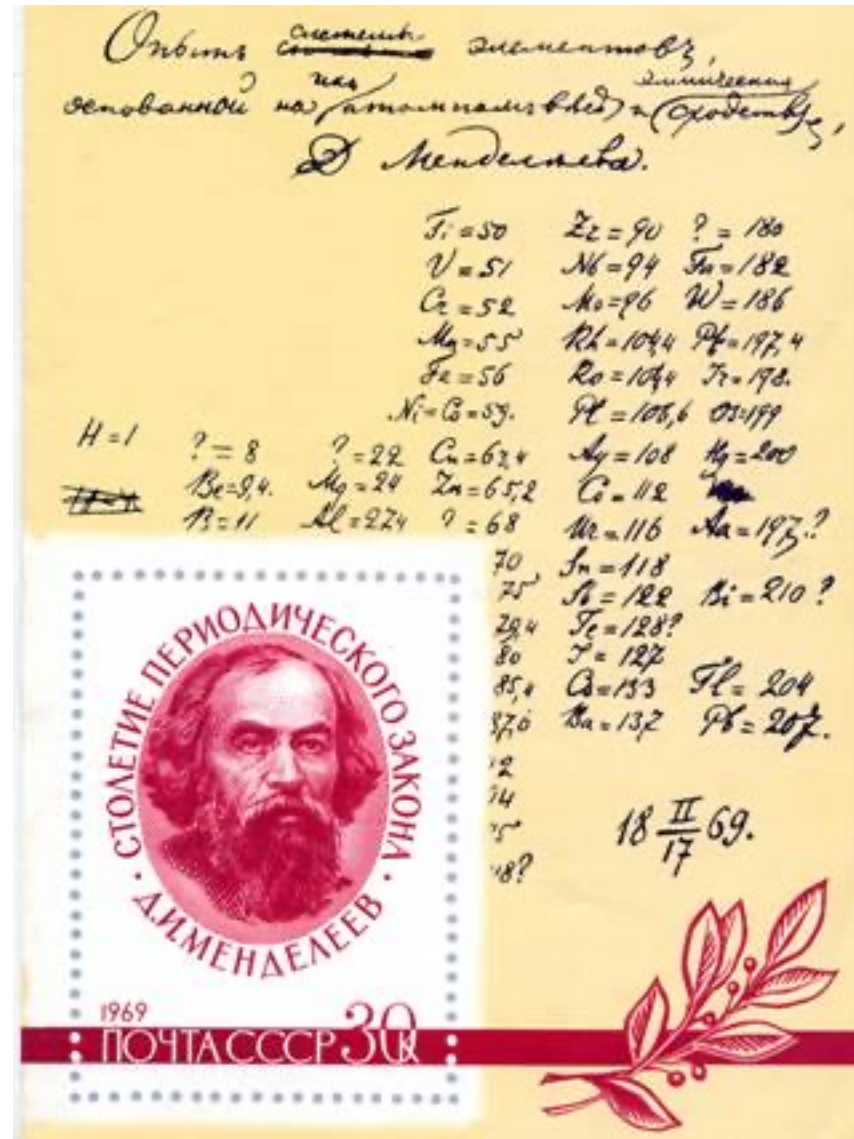 Опытъ системы элементовъ,
основанной на ихъ атомномъ вѣсѣ и химическомъ сходствѣ,
Д Менделѣева.
Ti = 50 Zr = 90 ? = 180
V = 51 Nb = 94 Ta = 182
Cr = 52 Mo = 96 W = 186
Mn = 55 Rh = 104,4 Pt = 197,4
Fe = 56 Ro = 104,4 Ir = 198.
Ni = Co = 59. Pl = 106,6 Os = 199
H = 1 ? = 8 ? = 22 Cu = 63,4 Ag = 108 Hg = 200
Be = 9,4. Mg = 24 Zn = 65,2 Cd = 112
B = 11 Al = 27,4 ? = 68 Ur = 116 Au = 197?
70 Sn = 118
75 Sb = 122 Bi = 210?
79,4 Te = 128?
80 J = 127
85,4 Cs = 133 Tl = 204
87,6 Ba = 137 Pb = 207.
92
94
95
118?
18 II/17 69.
СТОЛЕТИЕ ПЕРИОДИЧЕСКОГО ЗАКОНА
Д.И.МЕНДЕЛЕЕВ
1969
ПОЧТА СССР 30К